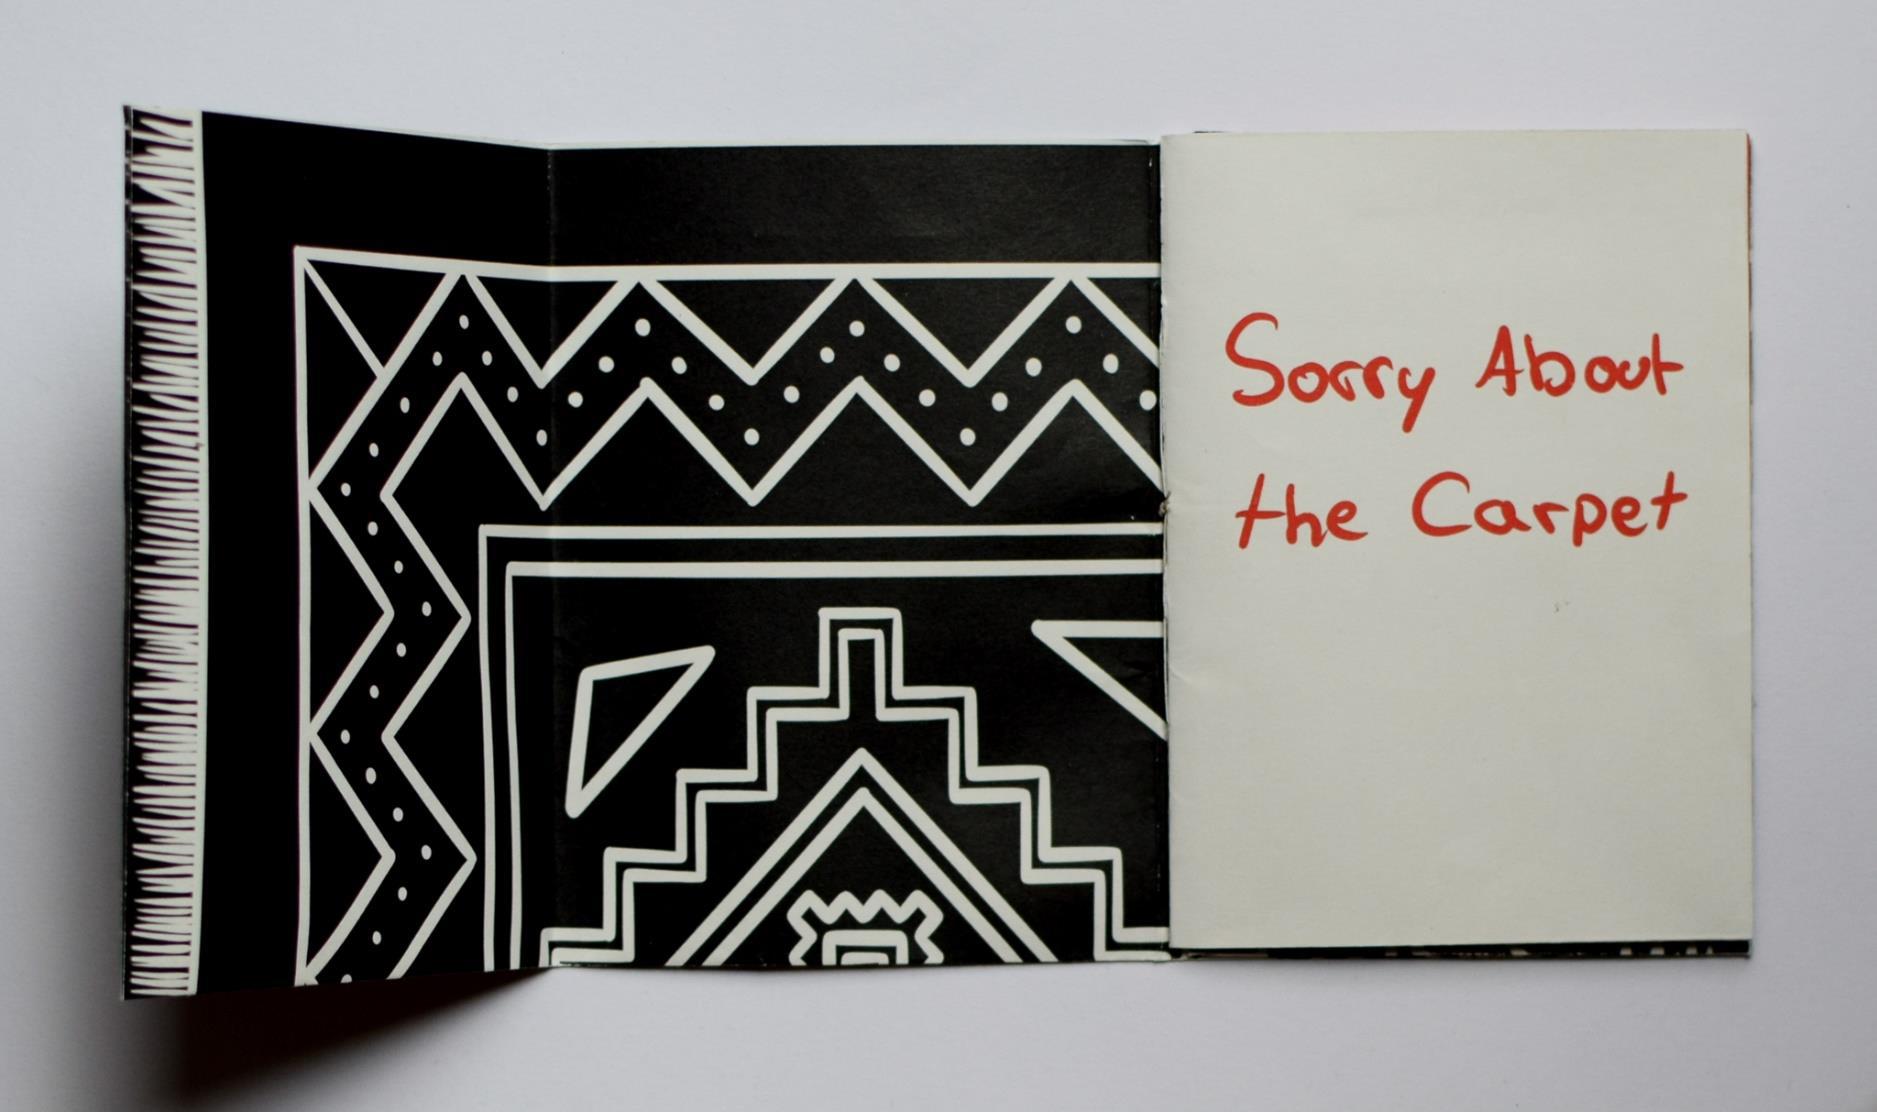 Sorry About
the Carpet